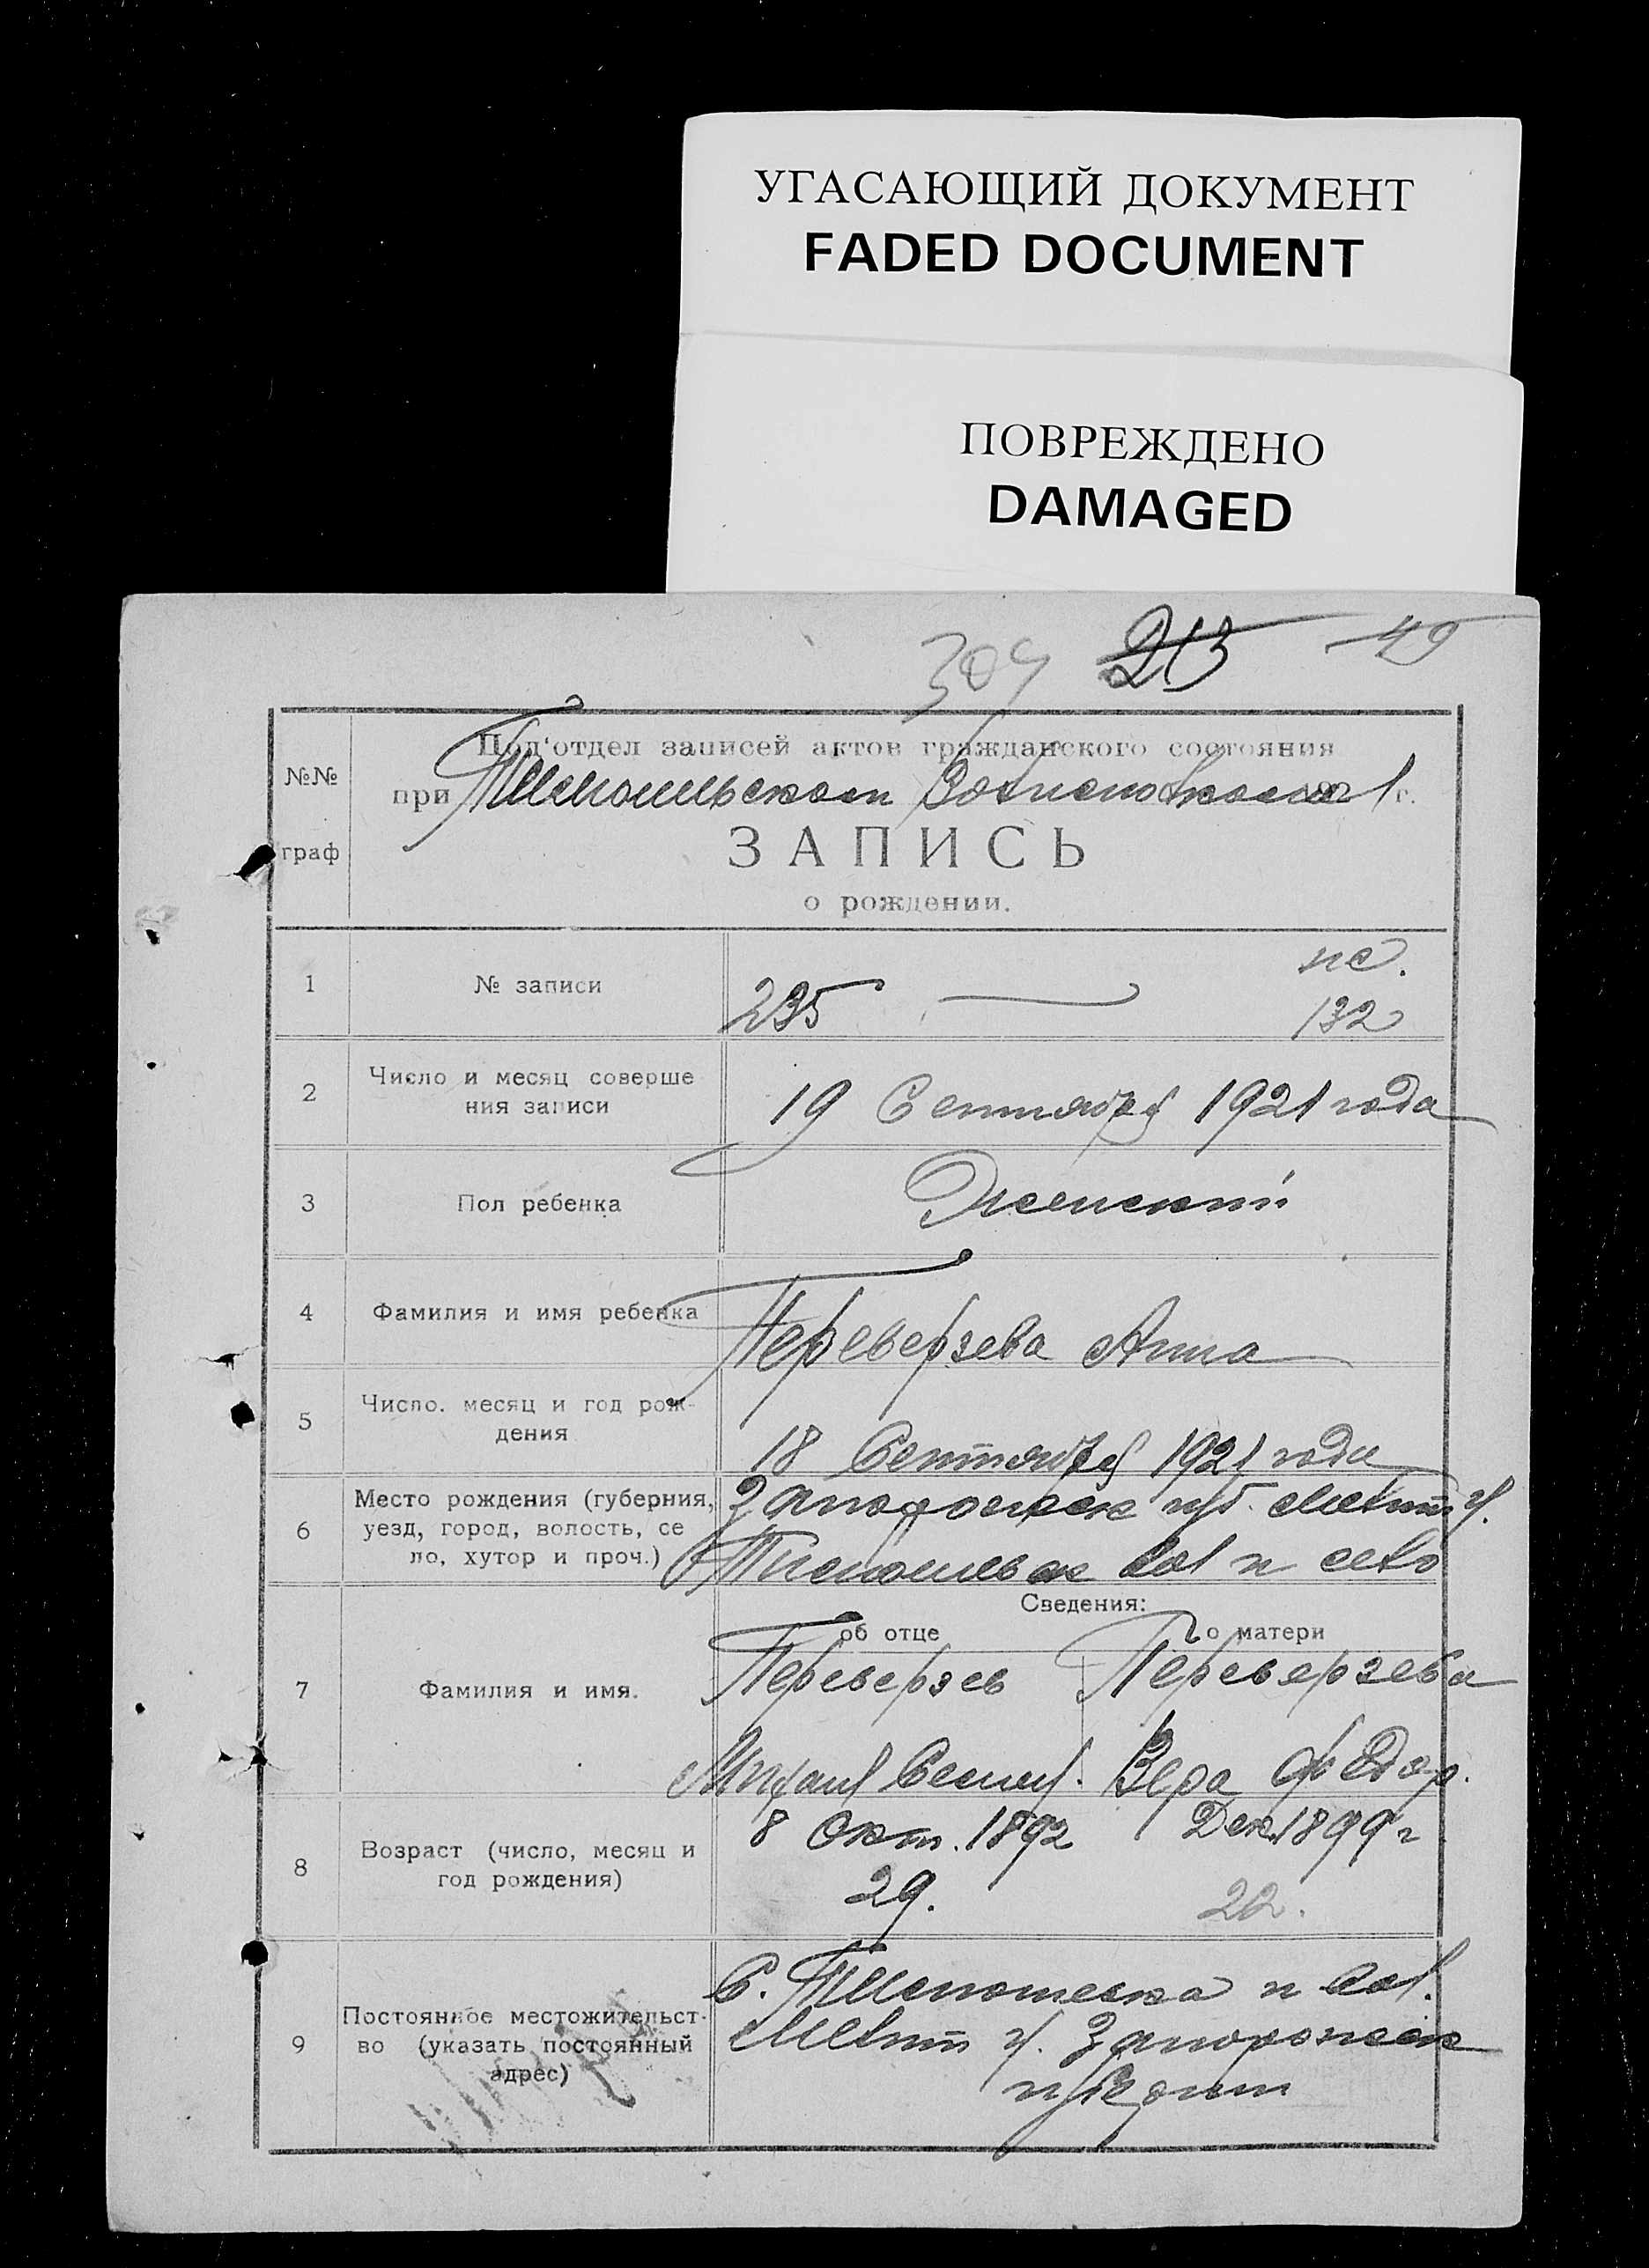 УГАСАЮЩИЙ ДОКУМЕНТ
FADED DOCUMENT
ПОВРЕЖДЕНО
DAMAGED
304 213 49
№№ граф
Под'отдел записей актов гражданского состояния
при 1921 г.
ЗАПИСЬ
о рождении.
1 № записи 235 132
2 Число и месяц соверше
ния записи 19 Сентября 1921 года
3 Пол ребенка Женский
4 Фамилия и имя ребенка Переверзева Анна
5 Число. месяц и год рож-
дения 18 Сентября 1921 года
6 Место рождения (губерния,
уезд, город, волость, се
ло, хутор и проч.)
Запорожск губ. Мелит у.
вол и село
Сведения:
об отце о матери
7 Фамилия и имя.
Переверзев Переверзева
Михаил Вера Федор.
8 Возраст (число, месяц и
год рождения)
8 Окт. 1892 Дек. 1899 г
29. 22.
9 Постоянное местожительст-
во (указать постоянный
адрес)
С. и вол.
Мелит у. Запорожск
губерни